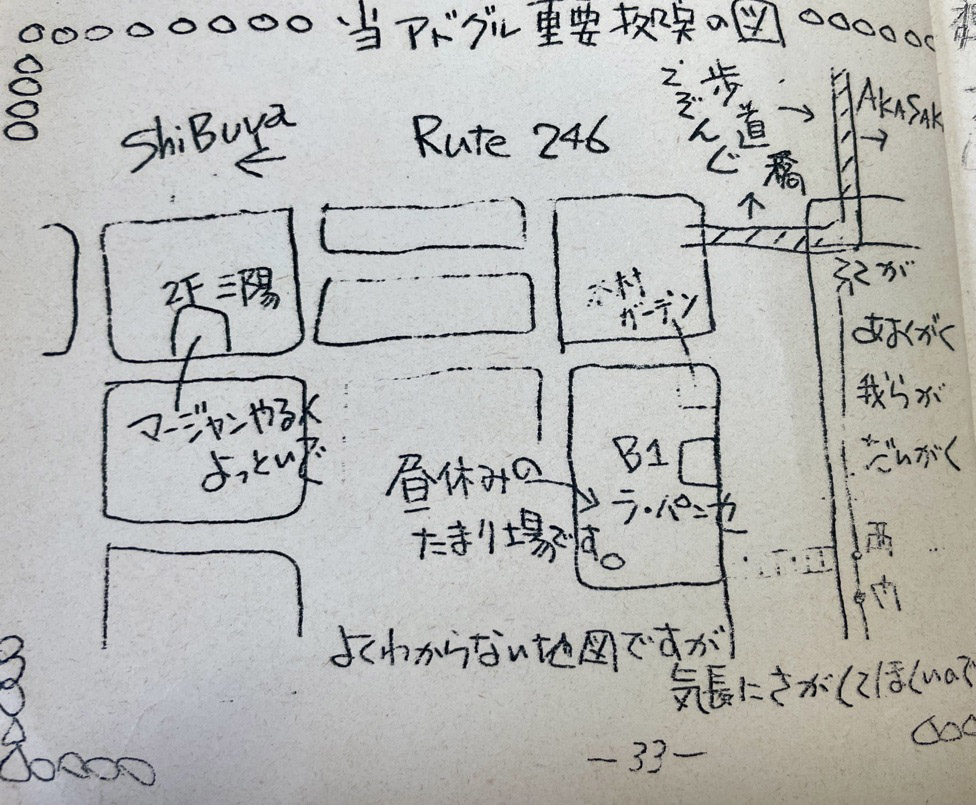 当アドグル重要拠点の図
ShiBuya
←
Rute 246
ごぞんじ
歩道橋
→
AKASAK
→
↑
2F 三陽
マージャンやる人
よっといで
木村
ガーデン
これが
あおがく
我らが
だいがく
B1
ラ・パンカ
昼休みの
たまり場です。
西
内
よくわからない地図ですが
気長にさがしてほしいので
-33-